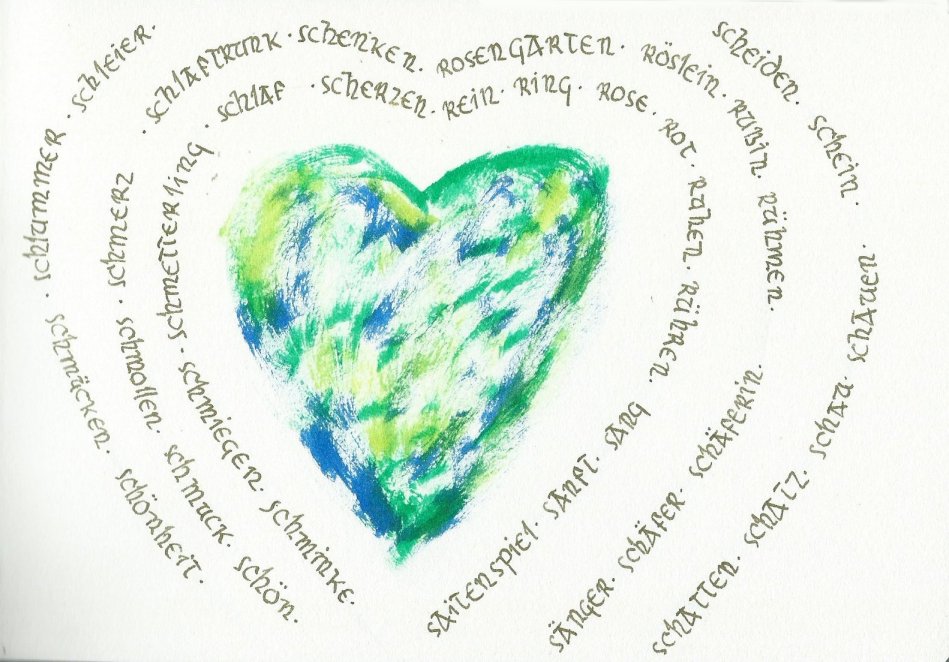 schlummer · schleier ·
· schmerz · schlaftrunk · schenken · rosengarten · röslein · rubin · rühmen ·
schmeterling · schlaf · scherzen · rein · ring · rose · rot · ruhen · rühren ·
scheiden · schein ·
· schmücken · schönheit ·
· schmollen · schmuck · schön ·
· schmiegen · schminke ·
saitenspiel · sanft · sang
sänger · schäfer · schäferin ·
schatten · schatz · schau · schauen ·